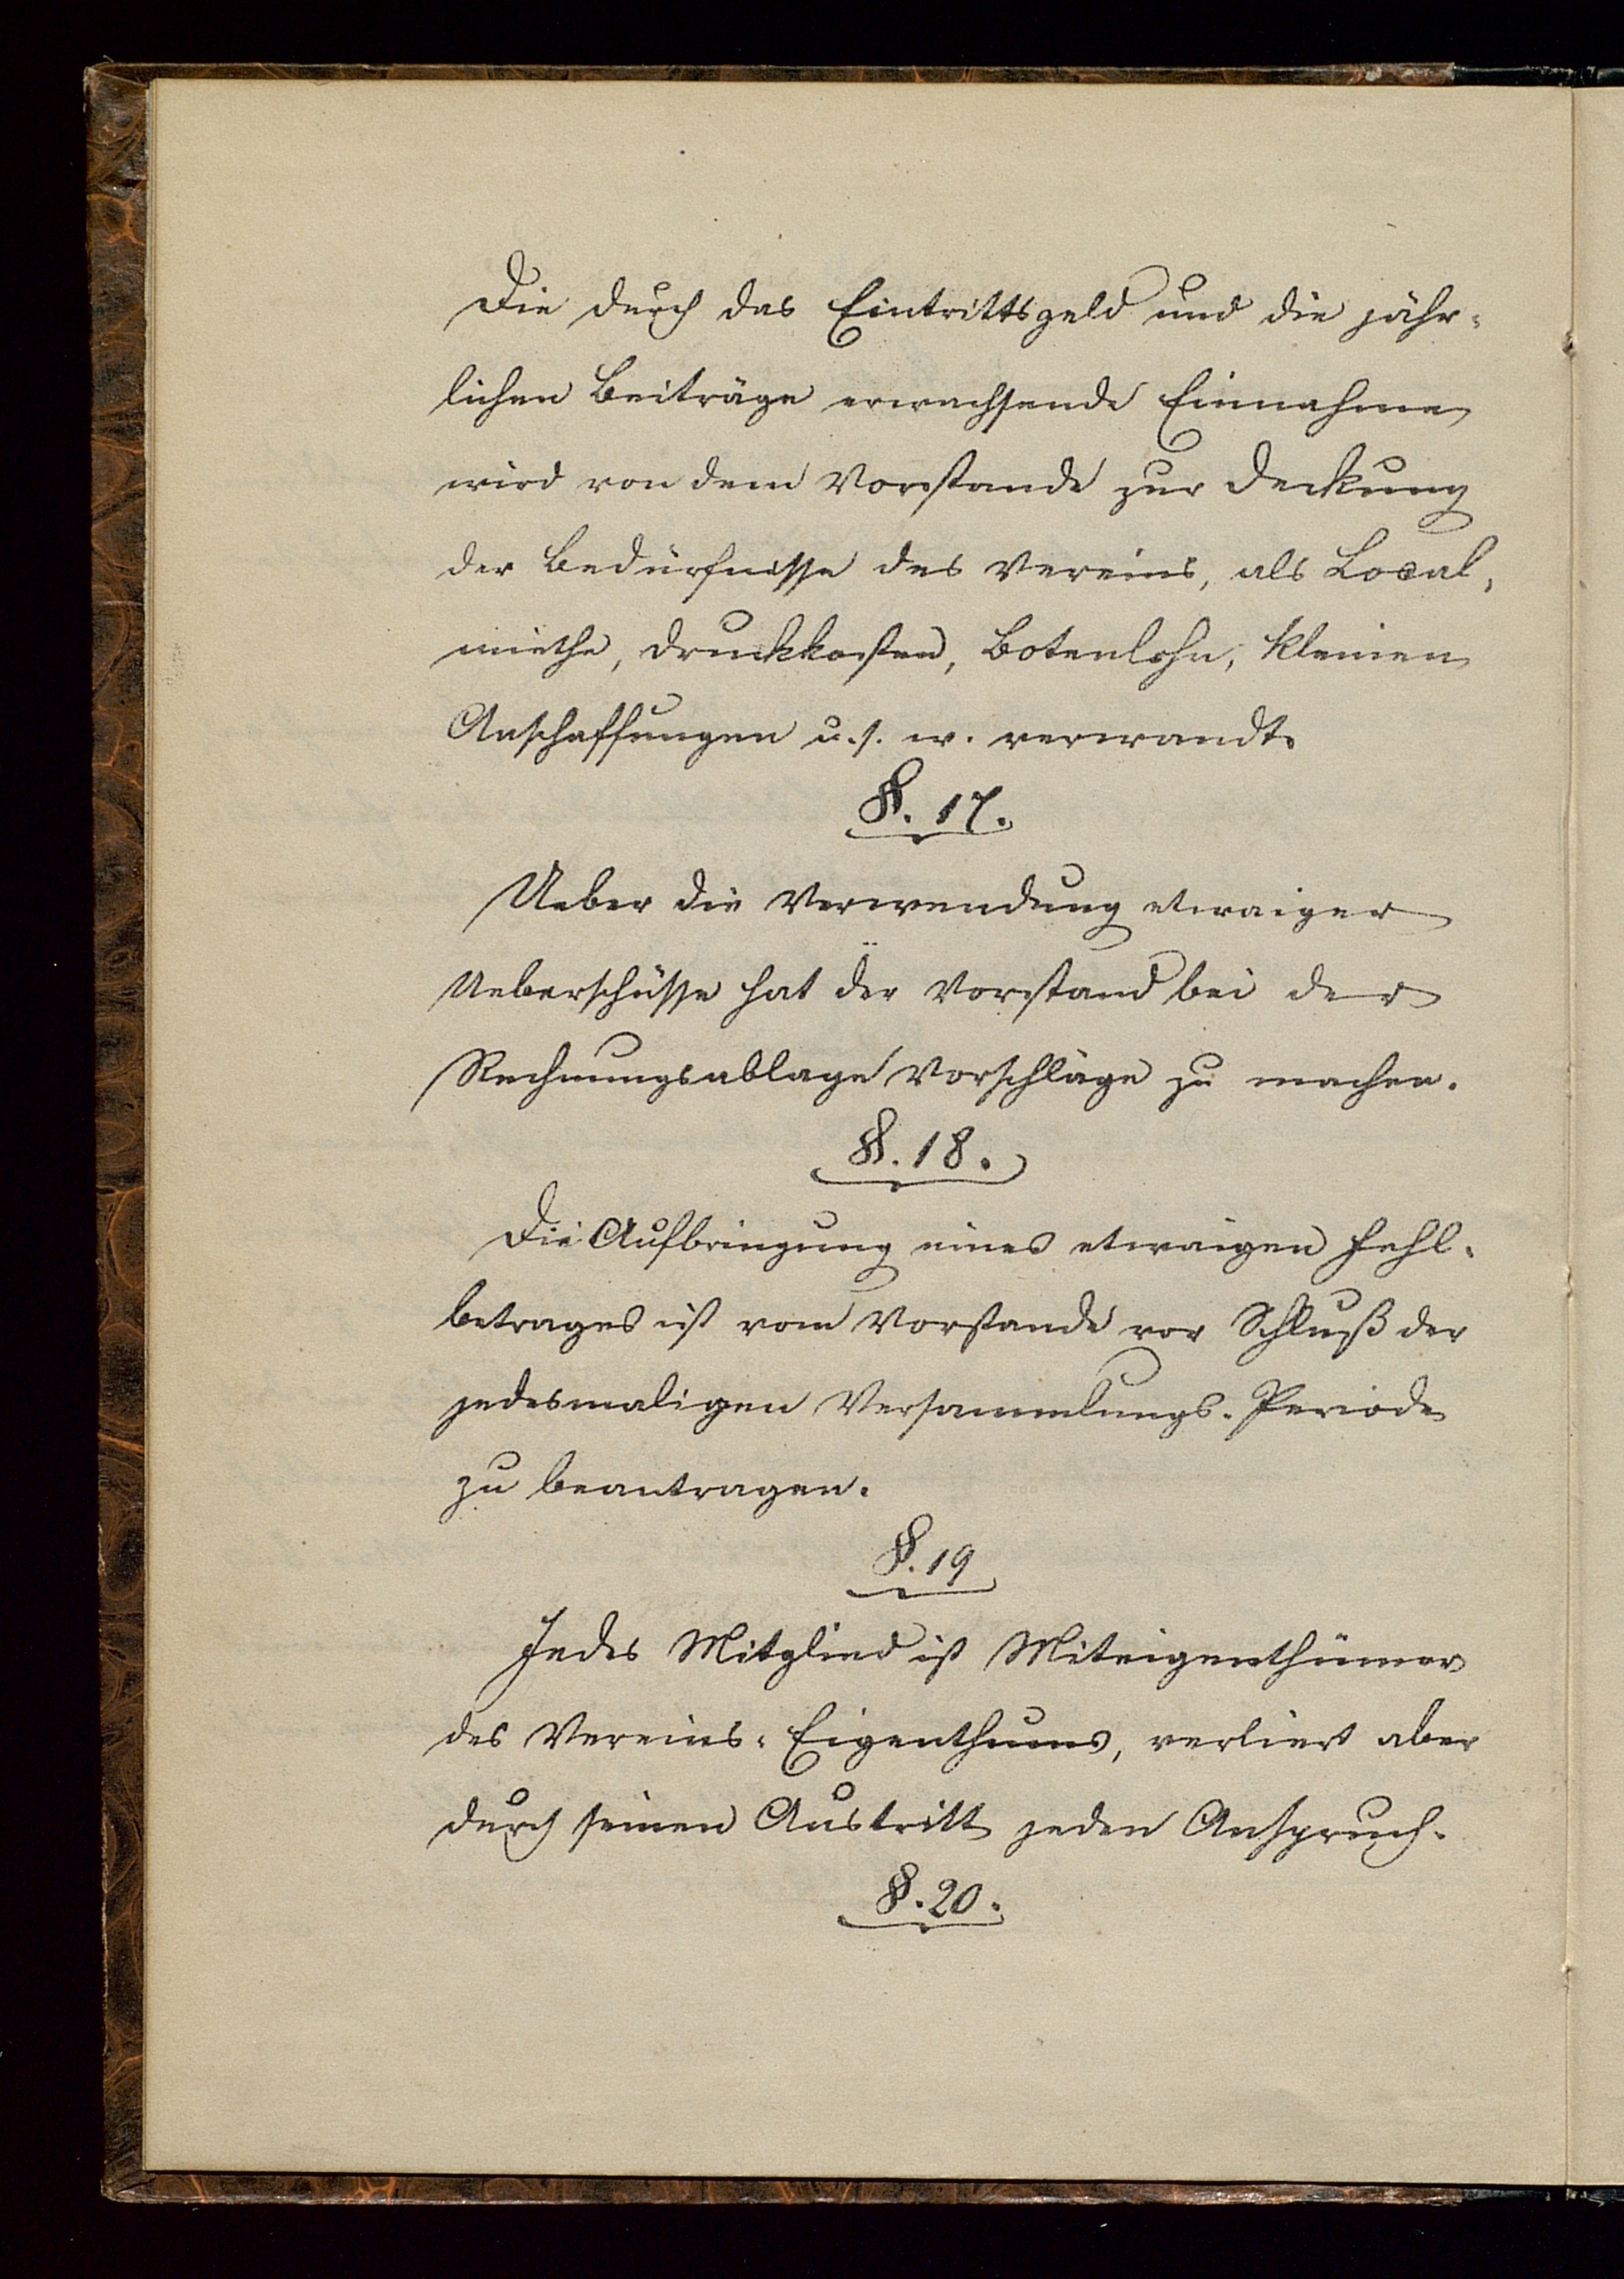 Die durch das Eintrittsgeld und die jähr-
lichen Beiträge erwachsende Einnahme
wird von dem Vorstande zur Deckung
der Bedürfnisse des Vereins, als Local-
miethe, Druckkosten, Botenlohn, kleinen
Anschaffungen u. s. w. verwandt.
§. 17.
Ueber die Verwendung etwaiger
Ueberschüsse hat der Vorstand bei der
Rechnungsablage Vorschläge zu machen.
§. 18.
Die Aufbringung eines etwaigen Fehl-
betrages ist vom Vorstande vor Schluß der
jedesmaligen Versammlungs-Periode
zu beantragen.
§. 19
Jedes Mitglied ist Miteigenthümer
des Vereins-Eigenthums, verliert aber
durch seinen Austritt jeden Anspruch.
§. 20.